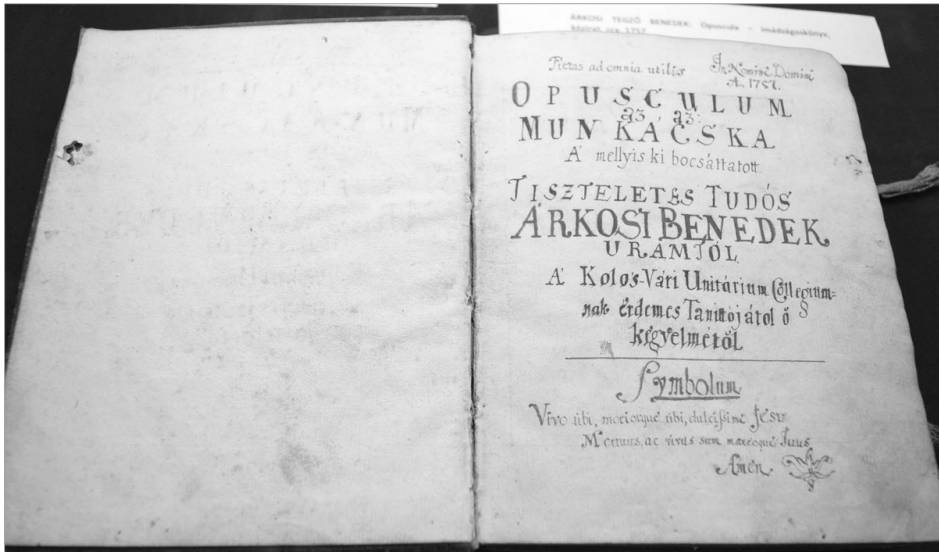 ÁRKOSI TEGZŐ BENEDEK: Opuscula - Imádságoskönyve,
kézirat 1757
Pietas ad omnia utilis
In Nomine Domini
A. 1757.
OPUSCULUM
az az:
MUNKÁCSKA
A' mellyis ki bocsáttatott
TISZTELETES TUDÓS
ÁRKOSI BENEDEK
URAMTÓL,
A' Kolos-Vári Unitárium Collegium=
nak érdemes Tanittojátol ő
kegyelmétől
Symbolum
Vivo tibi, moriorque tibi, dulcissime Jesu
Mortuus, ac vivus sum maneoque Tuus
Amen